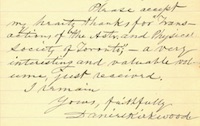 Please accept
my hearty thanks for Trans-
actions of the Astr. and Physical
Society of Toronto, — a very
interesting and valuable vol-
ume, just received.
I remain
Yours, faithfully
Daniel Kirkwood